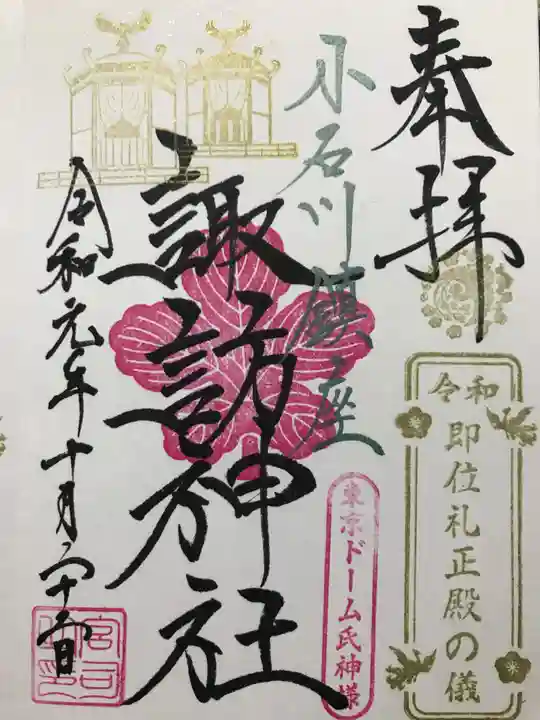 奉拝
令和
即位礼正殿の儀
小石川鎮座
東京ドーム氏神様
諏訪神社
令和元年十月二十二日
宮司